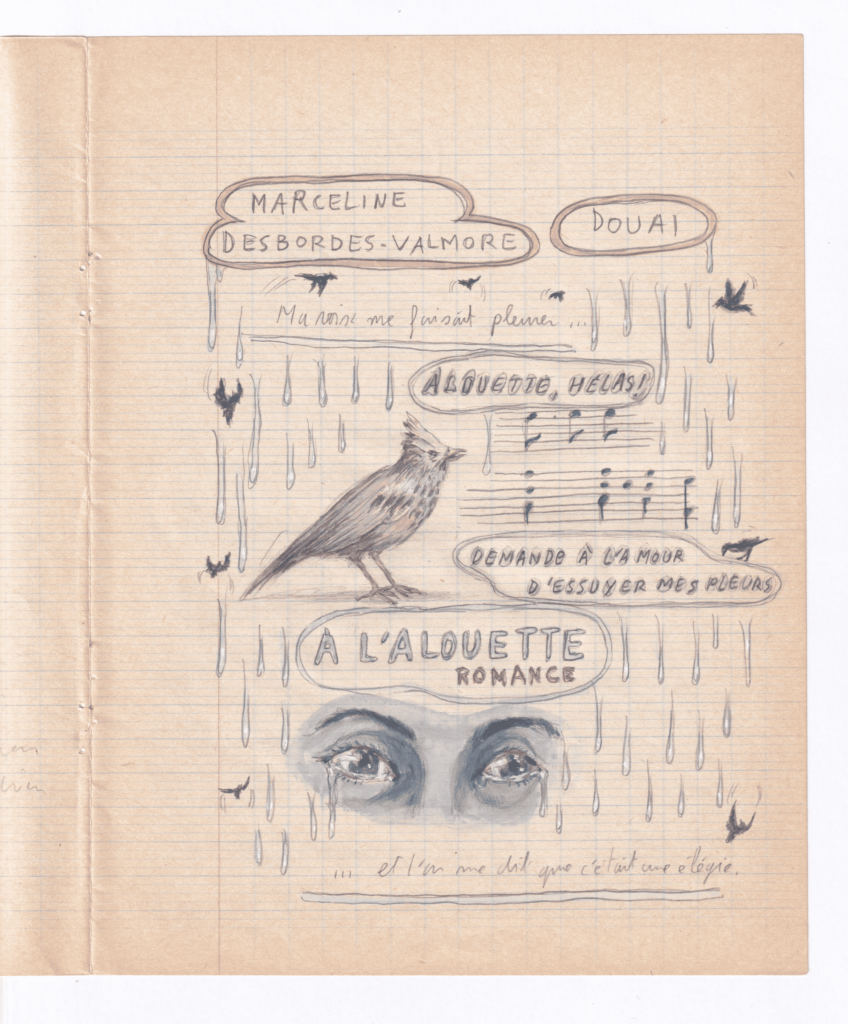 MARCELINE
DESBORDES-VALMORE
DOUAI
Ma voix me faisait pleurer ...
ALOUETTE, HÉLAS!
DEMANDE À L'AMOUR
D'ESSUYER MES PLEURS
A L'ALOUETTE
ROMANCE
... et l'on me dit que c'était une élégie.